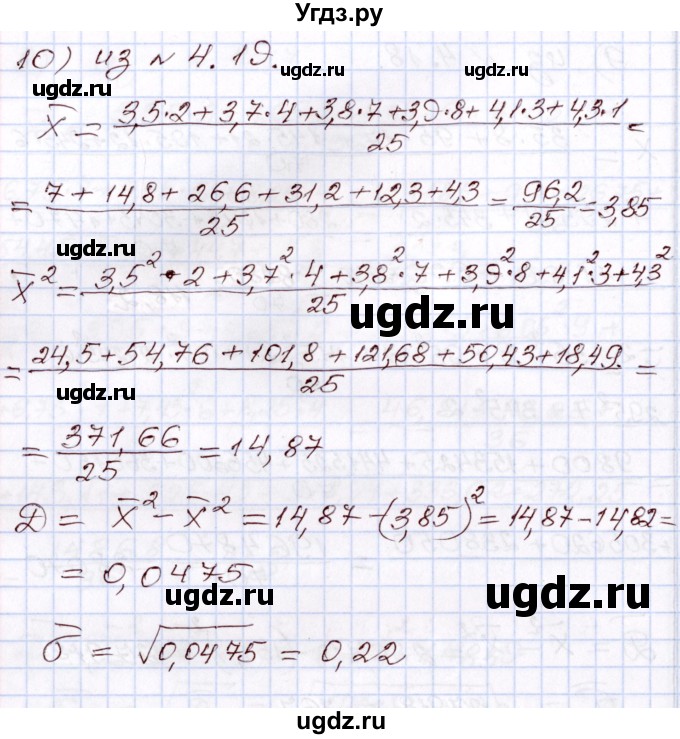 Угдз.ру
10) из № 4.19.
ugdz.ru ugdz.ru ugdz.ru
X̅ = (3,5·2 + 3,7·4 + 3,8·7 + 3,9·8 + 4,1·3 + 4,3·1)/25 =
= (7 + 14,8 + 26,6 + 31,2 + 12,3 + 4,3)/25 = 96,2/25 = 3,85
ugdz.ru
X̅² = (3,5²·2 + 3,7²·4 + 3,8²·7 + 3,9²·8 + 4,1²·3 + 4,3²)/25
ugdz.ru
= (24,5 + 54,76 + 101,8 + 121,68 + 50,43 + 18,49)/25 =
ugdz.ru
= 371,66/25 = 14,87
D = X̅² − X̅² = 14,87 − (3,85)² = 14,87 − 14,82 =
= 0,0475
ugdz.ru ugdz.ru
σ̅ = √0,0475 = 0,22
ugdz.ru